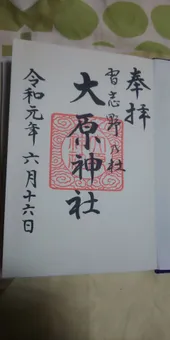 奉拝
習志野乃杜
大原神社
令和元年六月十六日